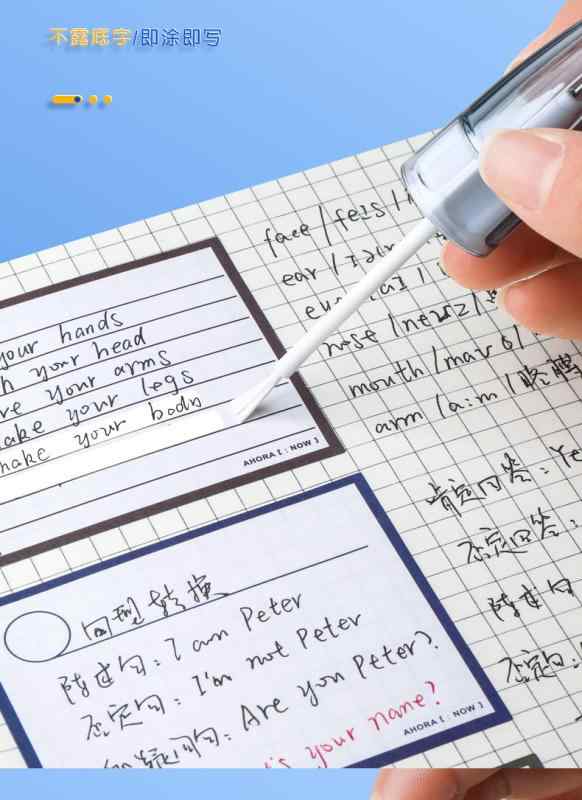 不露底字/即涂即写
face /feɪs/
ear /
nose /
mouth /
arm /a:m/
肯定回答: Ye
否定回答:
陈述句
否定句:
your hands
your head
your arms
make your legs
make your body
AHORA [ : NOW ]
句型转换
陈述句: I am Peter
否定句: I'm not Peter
疑问句: Are you Peter?
's your name?
AHORA [ : NOW ]